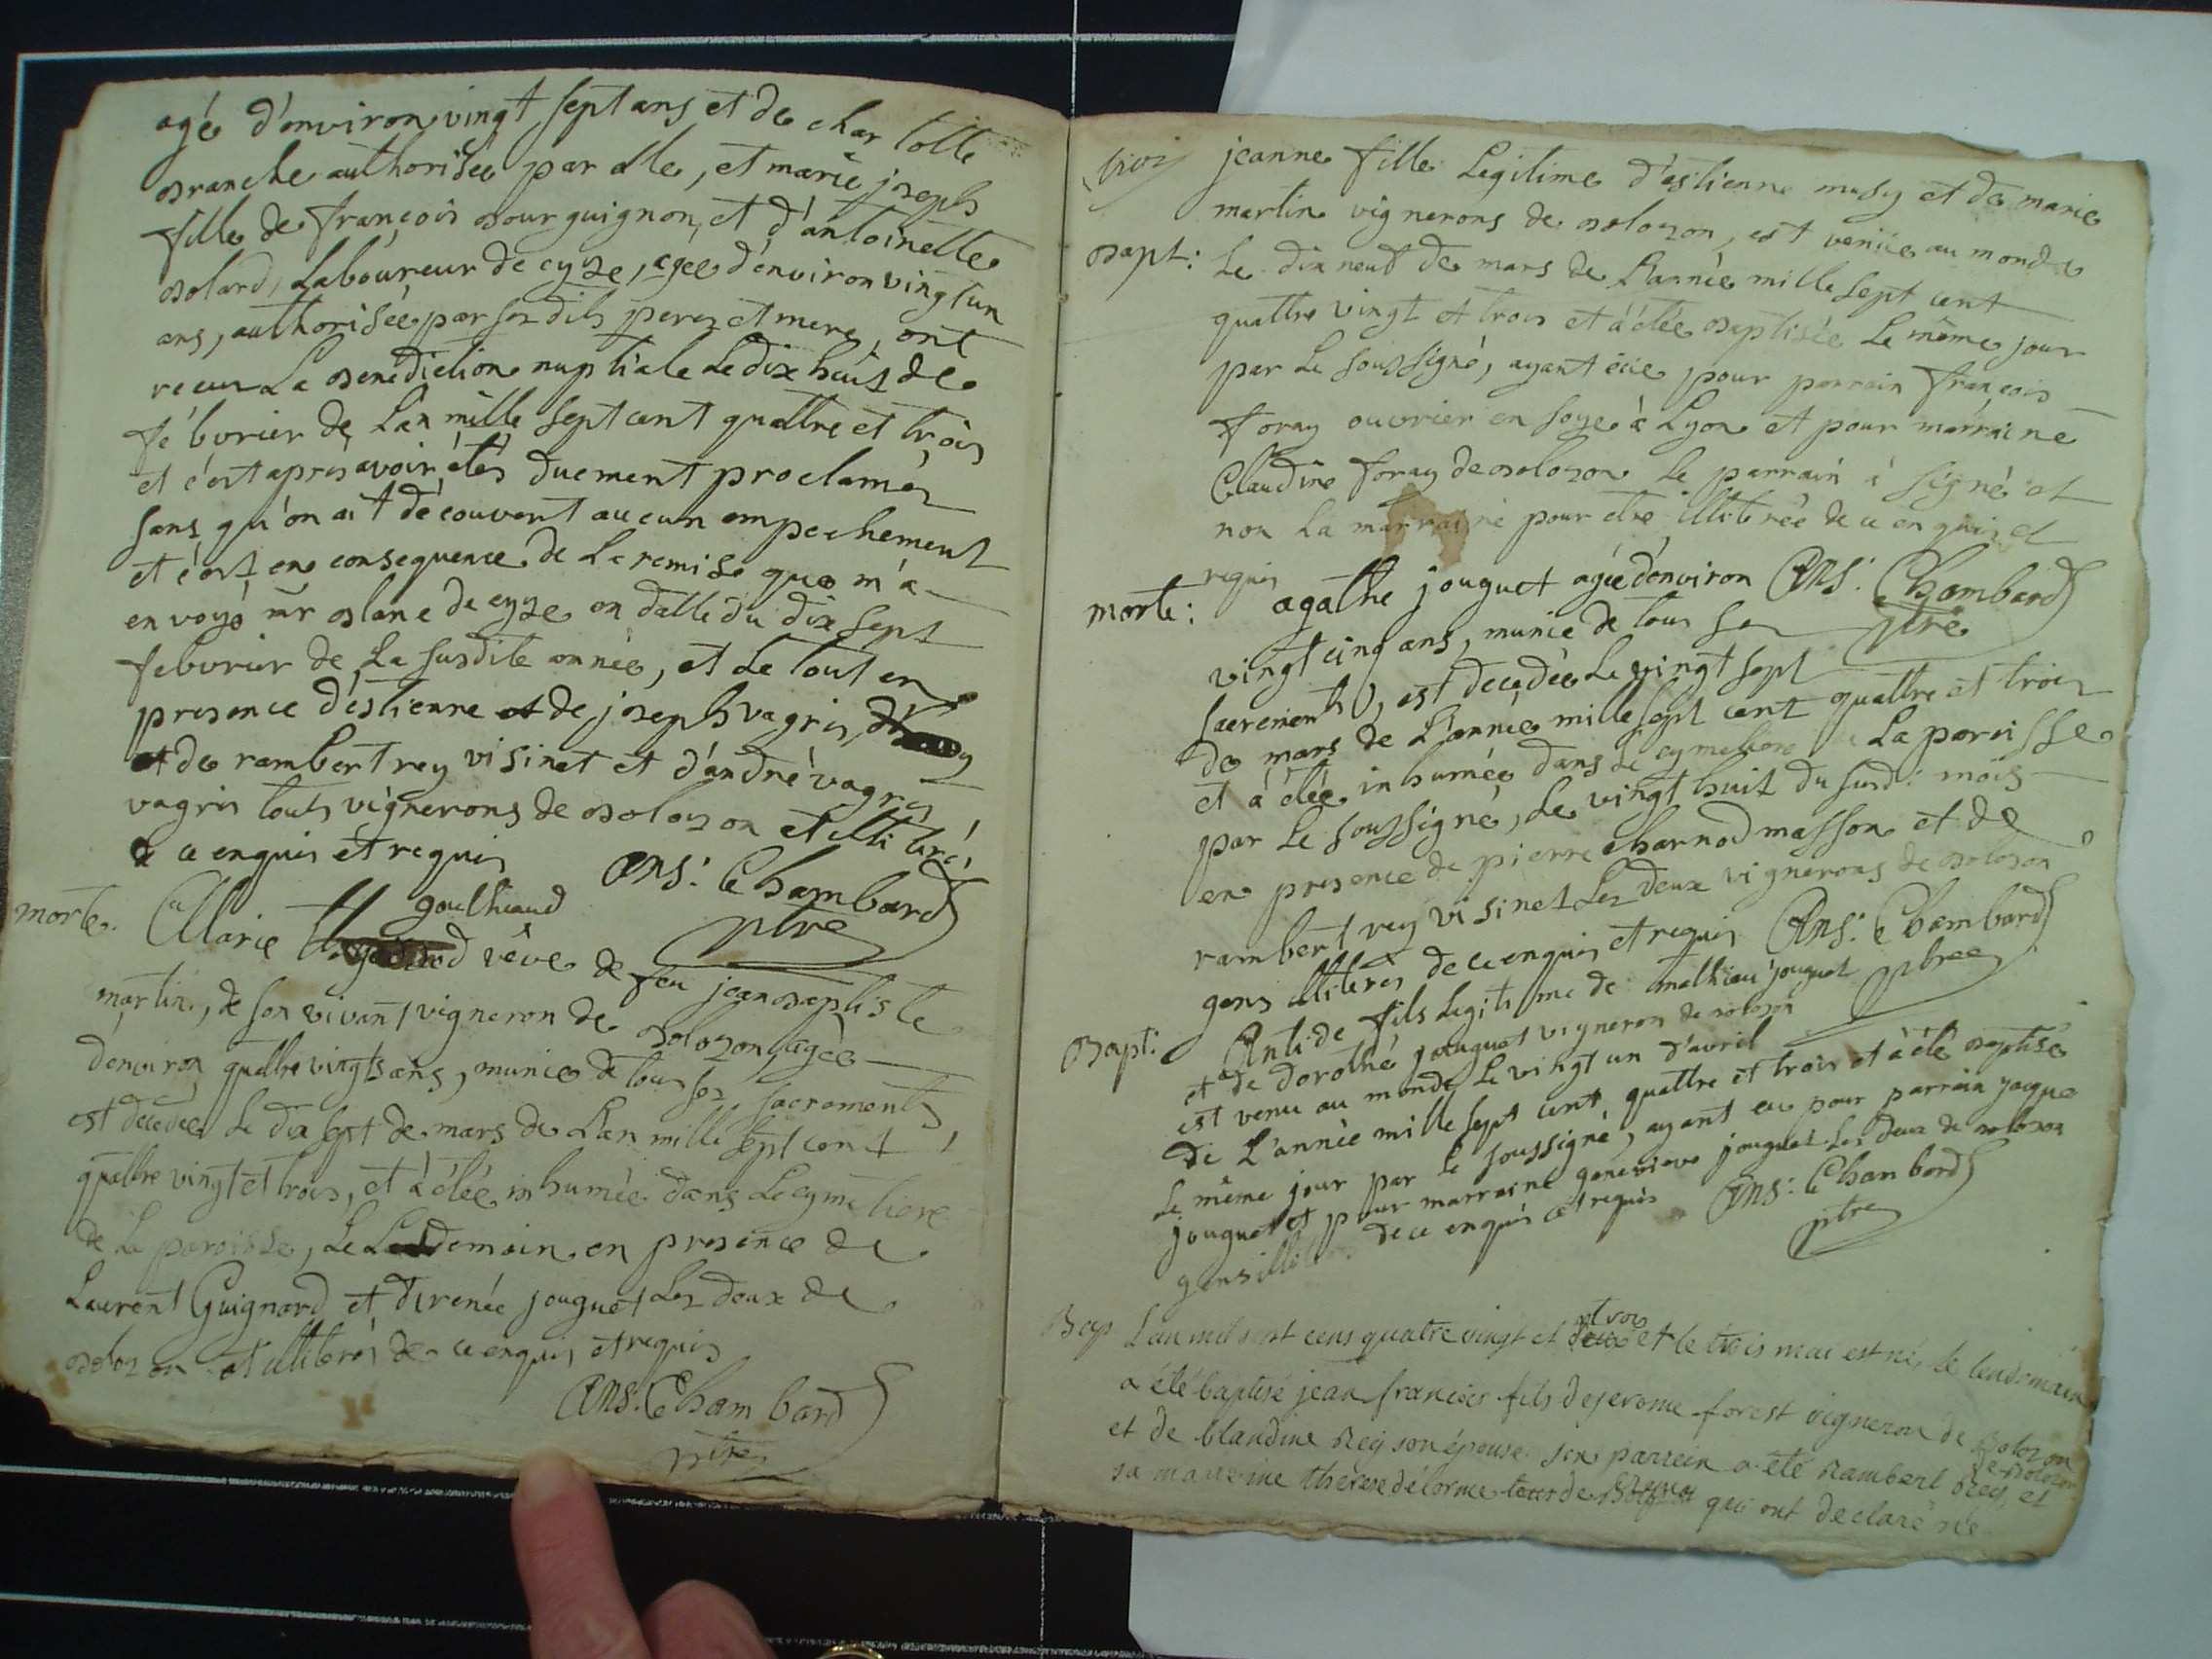 agé d'environ vingt sept ans et de char lotte
branche authorisée par elle, et marie joseph
fille de françois bourguignon, et d'antoinette
bolard, Laboureur de cyze, agée d'environ vingt un
ans, authorisée par ses dits peres et mere, ont
receu La benediction nuptiale Le dix huit de
fébvrier de L'an mille sept cent quattre et trois
et c'est apres avoir étés duement proclamés
sans qu'on ait découvert aucun empechement
et c'est en consequence de La remise que m'a
envoyé mr blanc de cyze en datte du dix sept
febvrier de La susdite année, et Le tout en
presence d'estienne et de joseph vagris
et de rambert rey visinet et d'andré vagris
vagris touts vignerons de bolozon et illitérés
de ce enquis et requis ANS: Chambard
ptre
morte. Marie goulhiaud
vêve de feu jean baptiste
martin, de son vivant vigneron de bolozon, agée
d'environ quattre vingts ans, munie de tous ses sacrements,
est decedée Le dix sept de mars de L'an mille sept cent
quattre vingt et trois, et à étée inhumée dans Le cymetiere
de La paroisse, Le Lendemain en presence de
Laurent Guignard et d'irenée jouguet Les deux de
bolozon et illiterés de ce enquis et requis
ANS. Chambard
ptre
jeanne fille Legitime d'estienne musy et de marie
martin vignerons de bolozon, est venüe au monde
bapt: Le dix neuf de mars de L'année mille sept cent
quattre vingt et trois et à étée baptisée Le même jour
par Le soussigné, ayant eüe pour parrain françois
foray ouvrier en soye à Lyon et pour marraine
Claudine foray de bolozon Le parrain à signé et
non La marraine pour etre illiterée de ce enquis et
requis ANS: Chambard
ptre
morte: agathe jouguet agée d'environ
vingt cinq ans, munie de tous ses
sacrements, est decedée Le vingt sept
de mars de L'année mille sept cent quattre et trois
et à étée inhumée dans Le cymetiere La paroisse
par Le soussigné, Le vingt huit du susd: mois
en presence de pierre charnod masson et de
rambert rey visinet Les deux vignerons de bolozon
gens illiteres de ce enquis et requis ANS: Chambard
ptree
Bapt: Antide fils Legitime de mathieu jouguet
et de dorothé jouguet vigneron de bolozon
est venu au monde Le vingt un d'avril
de L'année mille sept cent quattre et trois et à été baptisé
Le même jour par Le soussigné, ayant eu pour parrain jacque
jouguet et pour marraine genevieve jouguet Les deux de bolozon
gens illiteres de ce enquis et requis ANS: Chambard
ptre
Bap L'an mil sept cens quatre vingt et trois et le trois mai est né, le lendemain
a été baptisé jean françois fils de jerome forest vigneron de Bolozon
et de blandine Rey son épouse. son parrein a été Rambert Rey de Bolozon et
sa marreine thérese délorme de qui ont declaré ne